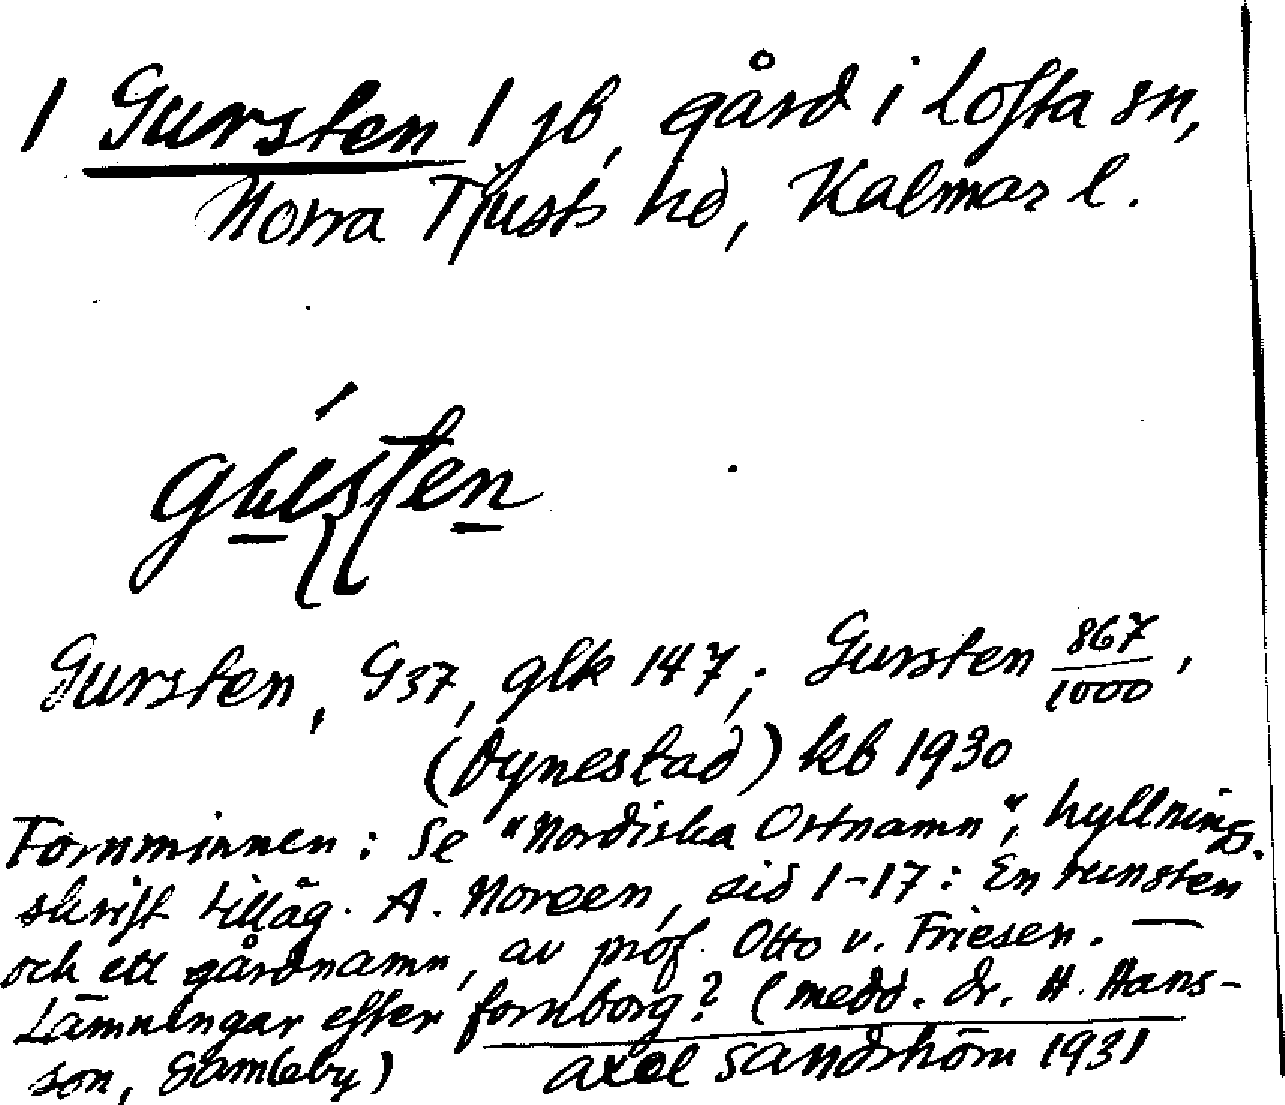 1 Gursten 1 jb, gård i Lofta sn,
Norra Tjusts hd, Kalmar l.
Gursten, G 37, glk 147; Gursten 867/1000,
(Dynestad) kb 1930
Fornminnen: Se "Nordiska Ortnamn", hyllnings-
skrift tilläg. A. Noreen, sid 1-17: En runsten
och ett gårdnamn, av prof. Otto v. Friesen. —
Lämningar efter fornborg? (medd. dr. H. Hans-
son, Gamleby) Axel Sandström 1931